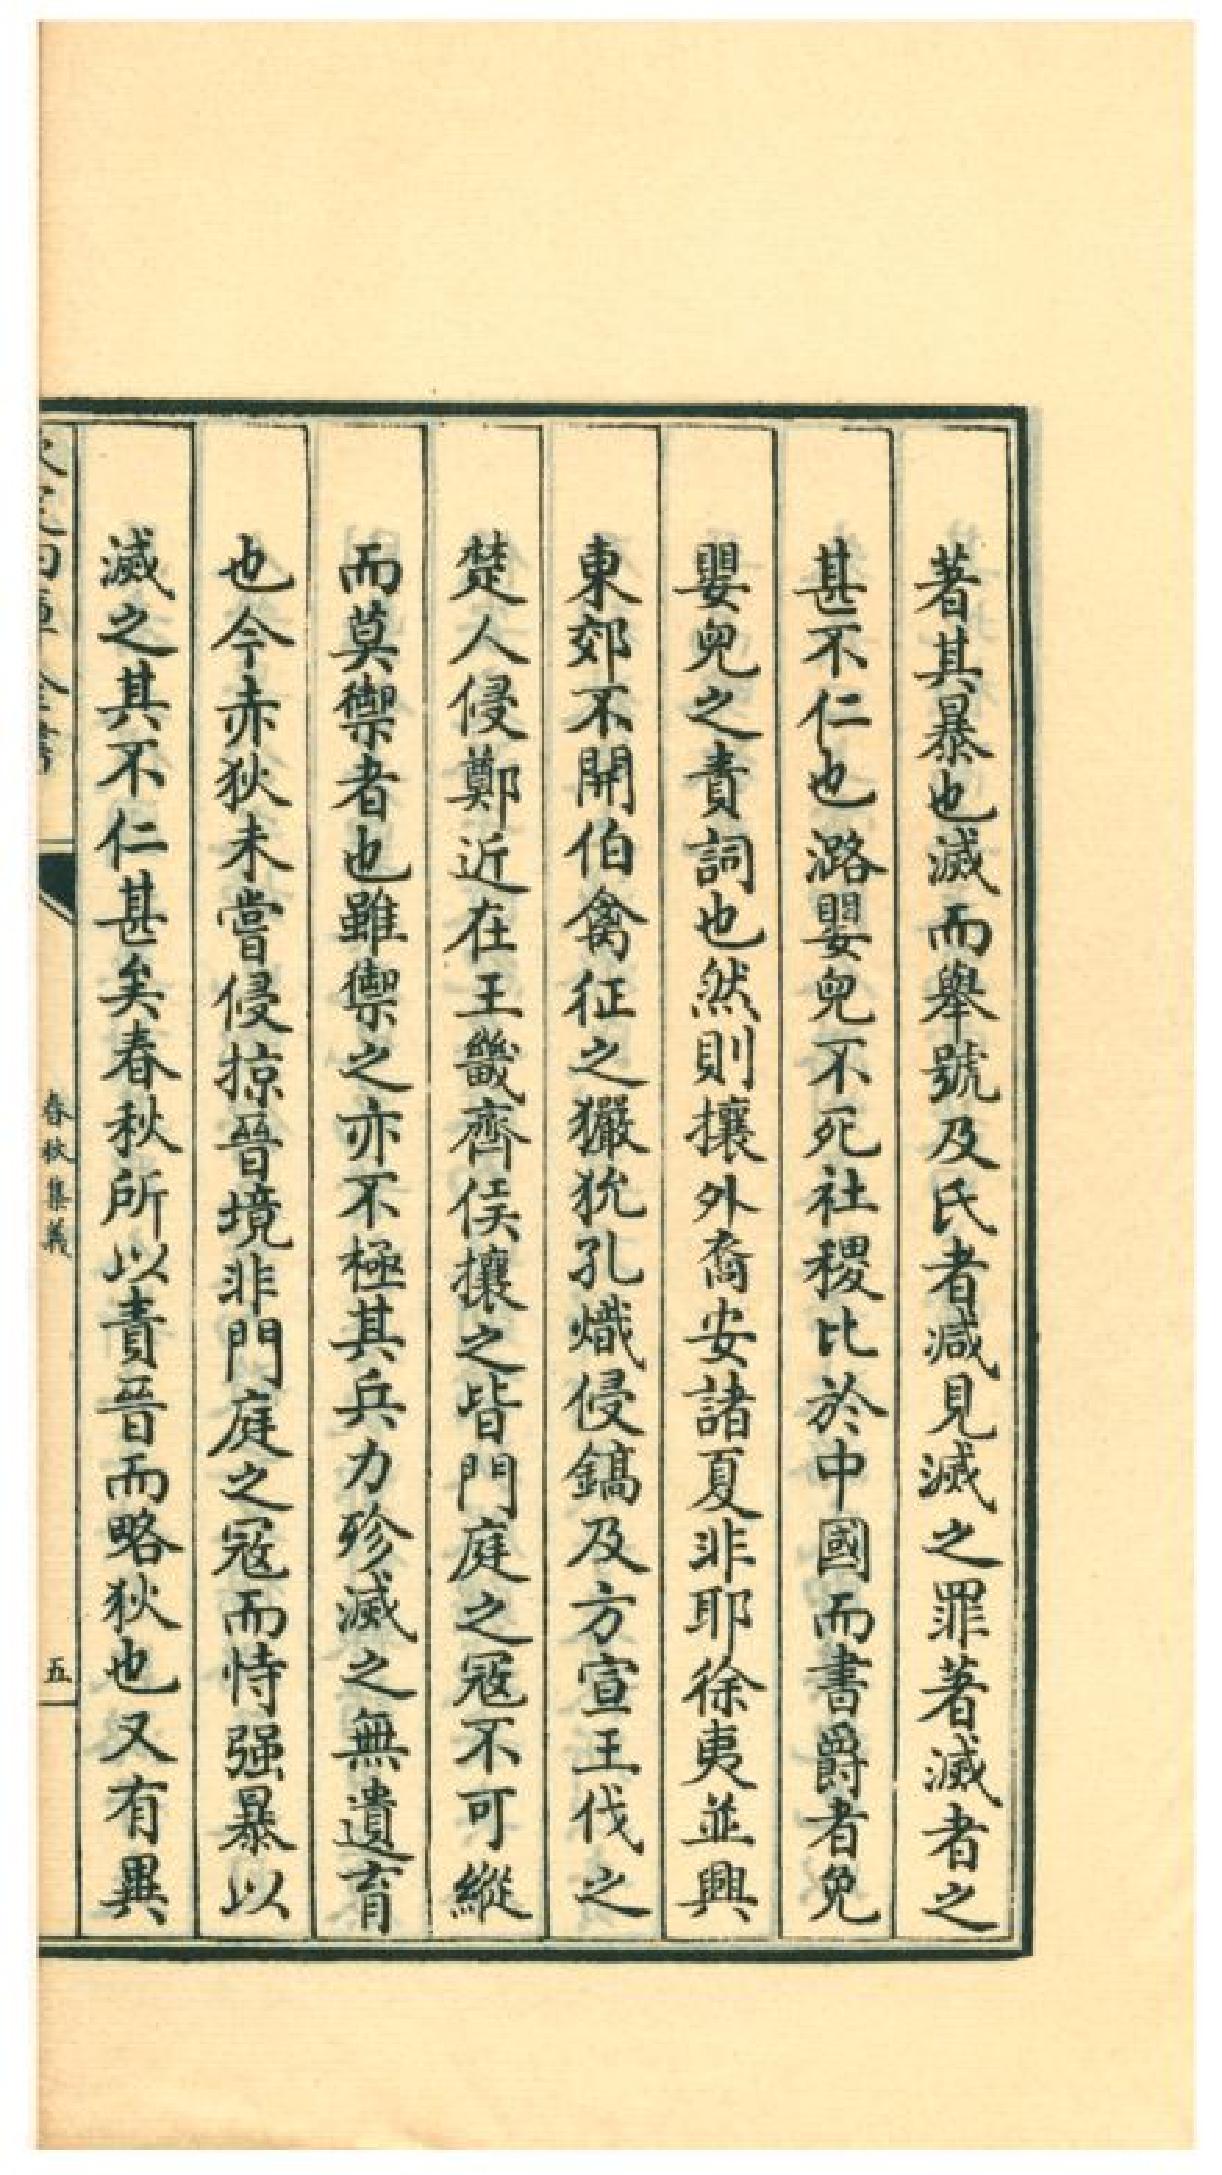 著其暴也滅而舉號及氏者减見滅之罪著滅者之
甚不仁也潞嬰兒不死社稷比於中國而書爵者免
嬰兒之責詞也然則攘外裔安諸夏非耶徐夷並興
東郊不開伯禽征之玁狁孔熾侵鎬及方宣王伐之
楚人侵鄭近在王畿齊侯攘之皆門庭之寇不可縱
而莫禦者也雖禦之亦不極其兵力殄滅之無遺育
也今赤狄未嘗侵掠晉境非門庭之寇而恃强暴以
滅之其不仁甚矣春秋所以責晉而略狄也又有異
欽定四庫全書
春秋集義
五